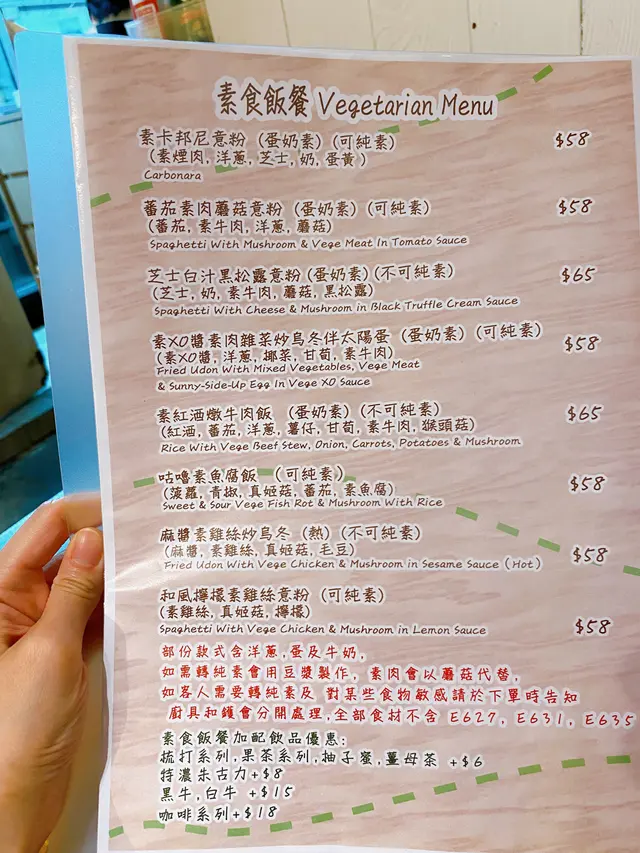 素食飯餐 Vegetarian Menu
素卡邦尼意粉 (蛋奶素) (可純素) $58
(素煙肉, 洋蔥, 芝士, 奶, 蛋黃)
Carbonara
蕃茄素肉蘑菇意粉 (蛋奶素) (可純素) $58
(蕃茄, 素牛肉, 洋蔥, 蘑菇)
Spaghetti With Mushroom & Vege Meat In Tomato Sauce
芝士白汁黑松露意粉 (蛋奶素) (不可純素) $65
(芝士, 奶, 素牛肉, 蘑菇, 黑松露)
Spaghetti With Cheese & Mushroom in Black Truffle Cream Sauce
素XO醬素肉雜菜炒烏冬伴太陽蛋 (蛋奶素) (可純素) $58
(素XO醬, 洋蔥, 椰菜, 甘荀, 素牛肉)
Fried Udon With Mixed Vegetables, Vege Meat
& Sunny-Side-Up Egg In Vege XO Sauce
素紅酒燉牛肉飯 (蛋奶素) (不可純素) $65
(紅酒, 蕃茄, 洋蔥, 薯仔, 甘荀, 素牛肉, 猴頭菇)
Rice With Vege Beef Stew, Onion, Carrots, Potatoes & Mushroom
咕嚕素魚腐飯 (可純素) $58
(菠蘿, 青椒, 真姬菇, 蕃茄, 素魚腐)
Sweet & Sour Vege Fish Rot & Mushroom With Rice
麻醬素雞絲炒烏冬 (熱) (不可純素) $58
(麻醬, 素雞絲, 真姬菇, 毛豆)
Fried Udon With Vege Chicken & Mushroom in Sesame Sauce (Hot)
和風檸檬素雞絲意粉 (可純素) $58
(素雞絲, 真姬菇, 檸檬)
Spaghetti With Vege Chicken & Mushroom in Lemon Sauce
部份款式含洋蔥,蛋及牛奶,
如需轉純素會用豆漿製作, 素肉會以蘑菇代替,
如客人需要轉純素及 對某些食物敏感請於下單時告知
廚具和鑊會分開處理,全部食材不含 E627, E631, E635
素食飯餐加配飲品優惠:
梳打系列,果茶系列,柚子蜜,薑母茶 +$6
特濃朱古力+$8
黑牛,白牛 +$15
咖啡系列+$18